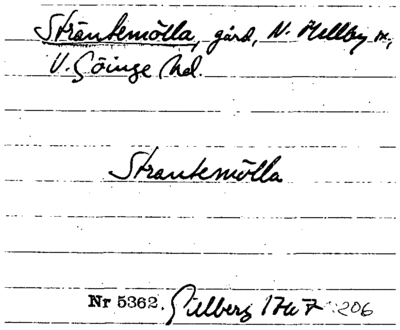 Sträntemölla, gård, N. Mellby sn,
V. Göinge hd.
Strantemölla
Nr 5362. Gillberg 1767: 206